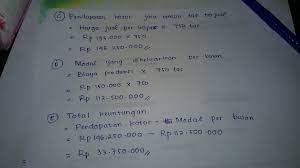 c) Pendapatan kotor jika semua tas terjual
= Harga jual per tas x 750 tas
= Rp 195.000 x 750
= Rp 146.250.000
D) Modal yang dikeluarkan per bulan
= Biaya produksi x 750 tas
= Rp 150.000 x 750
= Rp 112.500.000
E) Total keuntungan
= Pendapatan kotor - Modal per bulan
= Rp 146.250.000 - Rp 112.500.000
= Rp 33.750.000